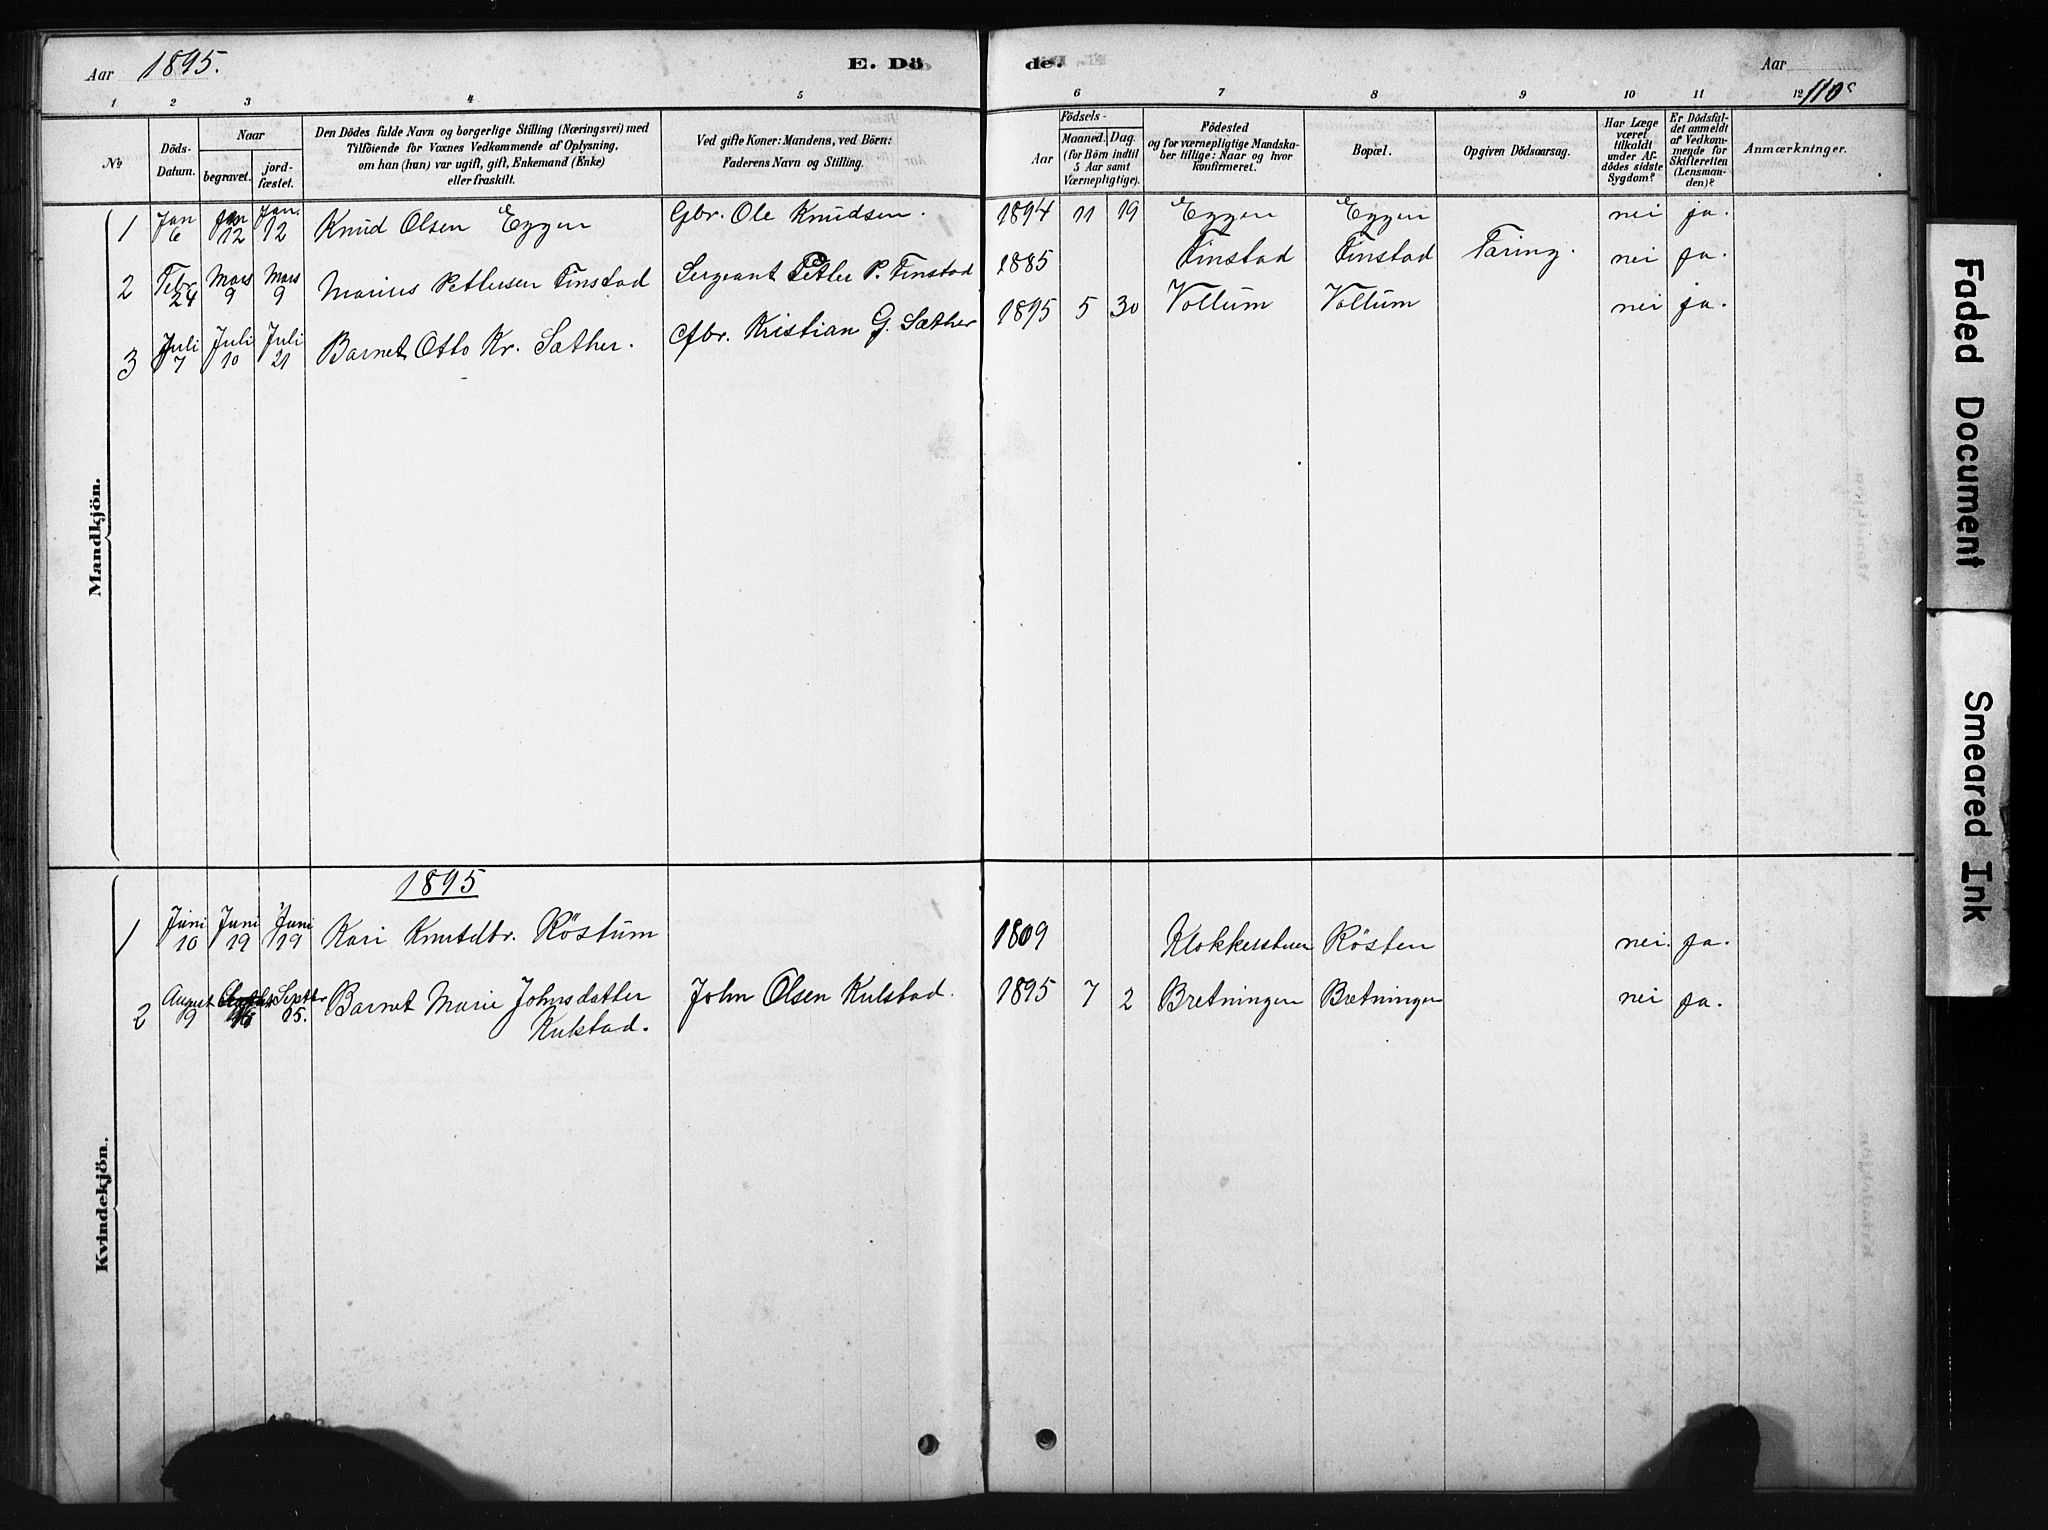 Aar 1895. E. Dö de. Aar
1 2 3 4 5 6 7 8 9 10 11 12 110
№
Döds-
Datum.
Naar
begravet.
jord-
fæstet.
Den Dödes fulde Navn og borgerlige Stilling (Næringsvei) med
Tilföiende for Voxnes Vedkommende af Oplysning,
om han (hun) var ugift, gift, Enkemand (Enke)
eller fraskilt.
Ved gifte Koner: Mandens, ved Börn:
Faderens Navn og Stilling.
Födsels-
Aar
Maaned. Dag.
(for Börn indtil
5 Aar samt
Værnepligtige).
Födested
og for værnepligtige Mandska-
ber tillige: Naar og hvor
konfirmeret.
Bopæl.
Opgiven Dödsaarsag.
Har Læge
været
tilkaldt
under Af-
dödes sidste
Sygdom?
Er Dödsfal-
det anmeldt
af Vedkom-
mende for
Skifteretten
(Lensman-
den)?
Anmærkninger.
Mandkjön.
1 Jan 6 Jan 12 Jan. 12 Knud Olsen Eggen Gbr. Ole Knudsen. 1894 11 19 Eggen Eggen nei ja.
2 Febr 24 Mars 9 Mars 9 Marius Pettersen Finstad Sergeant Petter P. Finstad 1885 Finstad Finstad Taring. nei ja.
3 Juli 7 Juli 10 Juli 21 Barnet Otto Kr. Sæther. Gbr. Kristian G. Sæther 1895 5 30 Vollum Vollum nei ja.
Kvindekjön.
1895
1 Juni 10 Juni 19 Juni 19 Kari Knutdtr. Röstum 1809 Klokkerstuen Rösten nei. ja.
2 August 9 Septbr 15. Barnet Marie Johnsdatter John Olsen Kulstad. 1895 7 2 Bretningen Bretningen nei ja.
Kulstad.
Faded Document
Smeared Ink